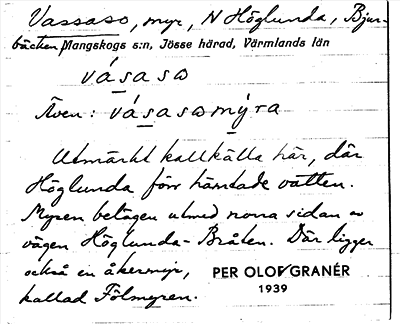 Vassaso, myr, N Höglunda, Bjur-
bäcken Mangskogs s:n, Jösse härad, Värmlands län
vásaso
Även: vásasomýra
Utmärkt kallkälla här, där
Höglunda förr hämtade vatten.
Myren belägen utmed norra sidan av
vägen Höglunda-Bråten. Där ligger
också en åkermyr, PER OLOF GRANÉR
kallad Fölmyren. 1939